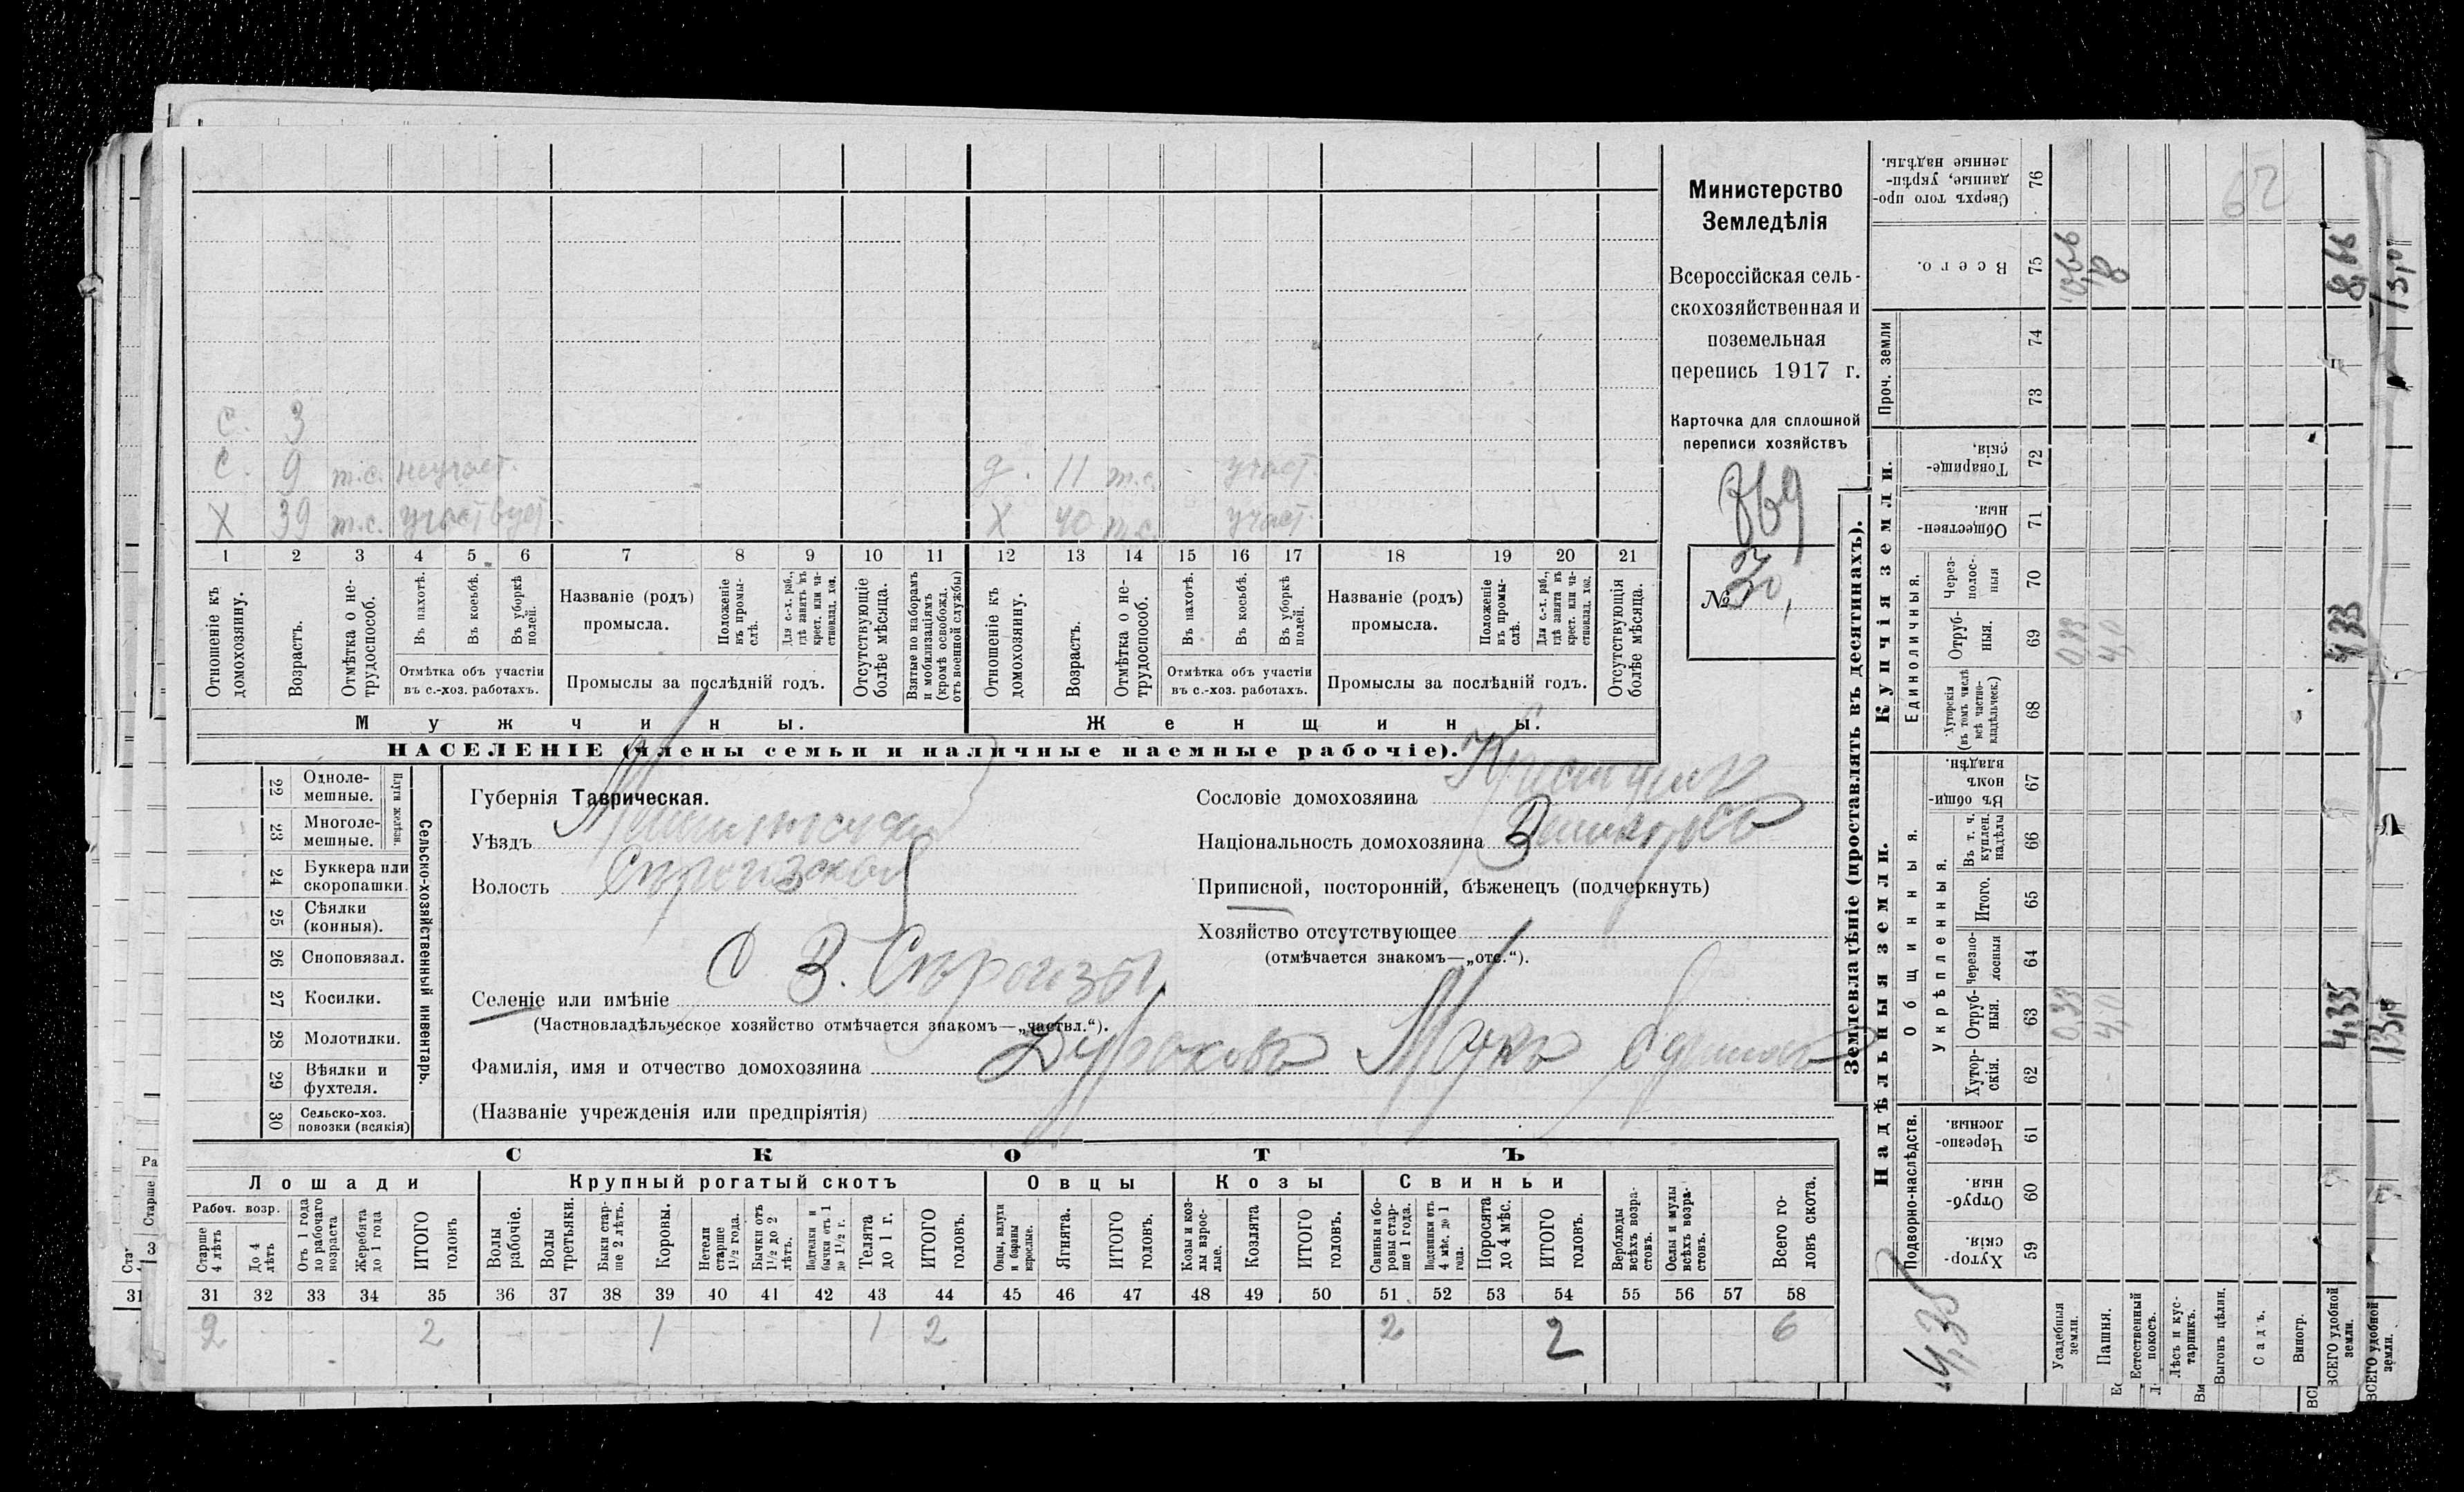 С. 3
С. 9 т.с. неучаст. д. 11 т.с. участ.
Х 39 т.с. участвует. Х 40 т.с. участ.
1 2 3 4 5 6 7 8 9 10 11 12 13 14 15 16 17 18 19 20 21
Отношеніе къ домохозяину.
Возрастъ.
Отмѣтка о не-трудоспособ.
Въ пахотѣ.
Въ косьбѣ.
Въ уборкѣ полей.
Отмѣтка объ участіи
въ с.-хоз. работахъ.
Названіе (родъ)
промысла.
Положеніе въ промы-слѣ.
Для с.-х. раб., гдѣ занятъ въ крест. или ча-стновлад. хоз.
Промыслы за послѣдній годъ.
Отсутствующіе болѣе мѣсяца.
Взятые по наборамъ и мобилизаціямъ (кромѣ освобожд. отъ военной службы)
Отношеніе къ домохозяину.
Возрастъ.
Отмѣтка о не-трудоспособ.
Въ пахотѣ.
Въ косьбѣ.
Въ уборкѣ полей.
Отмѣтка объ участіи
въ с.-хоз. работахъ.
Названіе (родъ)
промысла.
Положеніе въ промы-слѣ.
Для с.-х. раб., гдѣ занята въ крест. или ча-стновлад. хоз.
Промыслы за послѣдній годъ.
Отсутствующія болѣе мѣсяца.
Мужчины. Женщины.
НАСЕЛЕНІЕ (члены семьи и наличные наемные рабочіе).
Министерство
Земледѣлія
Всероссійская сель-
скохозяйственная и
поземельная
перепись 1917 г.
Карточка для сплошной
переписи хозяйствъ
№ 30,
Сельско-хозяйственный инвентарь.
Плуги желѣзн.
22 Одноле-мешные.
23 Многоле-мешные.
24 Буккера или скоропашки.
25 Сѣялки (конныя).
26 Сноповязал.
27 Косилки.
28 Молотилки.
29 Вѣялки и фухтеля.
30 Сельско-хоз. повозки (всякія)
Губернія Таврическая.
Уѣздъ Мелитопольскій
Волость Сѣрогозской
Селеніе или имѣніе С В. Сѣрогозы
(Частновладѣльческое хозяйство отмѣчается знакомъ—„частвл.“).
Фамилія, имя и отчество домохозяина
(Названіе учрежденія или предпріятія)
Сословіе домохозяина Крестьянинъ
Національность домохозяина Великороссъ
Приписной, посторонній, бѣженецъ (подчеркнуть)
Хозяйство отсутствующее
(отмѣчается знакомъ—„отс.“).
СКОТЪ
Лошади Крупный рогатый скотъ Овцы Козы Свиньи
Рабоч. возр.
Старше 4 лѣтъ
До 4 лѣтъ
Отъ 1 года до рабочаго возраста
Жеребята до 1 года
ИТОГО головъ
Волы рабочіе.
Волы третьяки.
Быки стар-ше 2 лѣтъ.
Коровы.
Нетели старше 1½ года.
Бычки отъ 1½ до 2 лѣтъ.
Подтелки и бычки отъ 1 до 1½ г.
Телята до 1 г.
ИТОГО головъ.
Овцы, валухи и бараны взрослые.
Ягнята.
ИТОГО головъ.
Козы и коз-лы взрос-лые.
Козлята
ИТОГО головъ.
Свиньи и бо-ровы стар-ше 1 года.
Подсвинки отъ 4 мѣс. до 1 года.
Поросята до 4 мѣс.
ИТОГО головъ.
Верблюды всѣхъ возра-стовъ.
Ослы и мулы всѣхъ возра-стовъ.
Всего го-ловъ скота.
31 32 33 34 35 36 37 38 39 40 41 42 43 44 45 46 47 48 49 50 51 52 53 54 55 56 57 58
2 2 1 1 2 2 2 6
Землевладѣніе (проставлять въ десятинахъ).
Надѣльныя земли. Купчія земли. Проч. земли
Подворно-наслѣдств. Общинныя. Укрѣпленныя. Единоличныя.
59 Хутор-скія.
60 Отруб-ныя.
61 Черезпо-лосныя.
62 Хутор-скія.
63 Отруб-ныя.
64 Черезпо-лосныя
65 Итого.
66 Въ т. ч. куплен. надѣлы
67 Въ общи-номъ владѣн.
68 Хуторскія (въ томъ числѣ всѣ частно-владѣльческ.)
69 Отруб-ныя.
70 Через-полос-ныя
71 Обществен-ныя.
72 Товарище-скія.
73
74
75 Всего.
76 Сверхъ того про-данные, укрѣп-ленные надѣлы.
Усадебныя земли. 0,33 0,33 0,66
Пашня. 4,0 4,0 8
Естественный покосъ.
Лѣсъ и кус-тарникъ.
Выгонъ цѣлин.
Садъ.
Виногр.
ВСЕГО удобной земли. 4,33 4,33 8,66
ВСЕГО удобной земли.
62